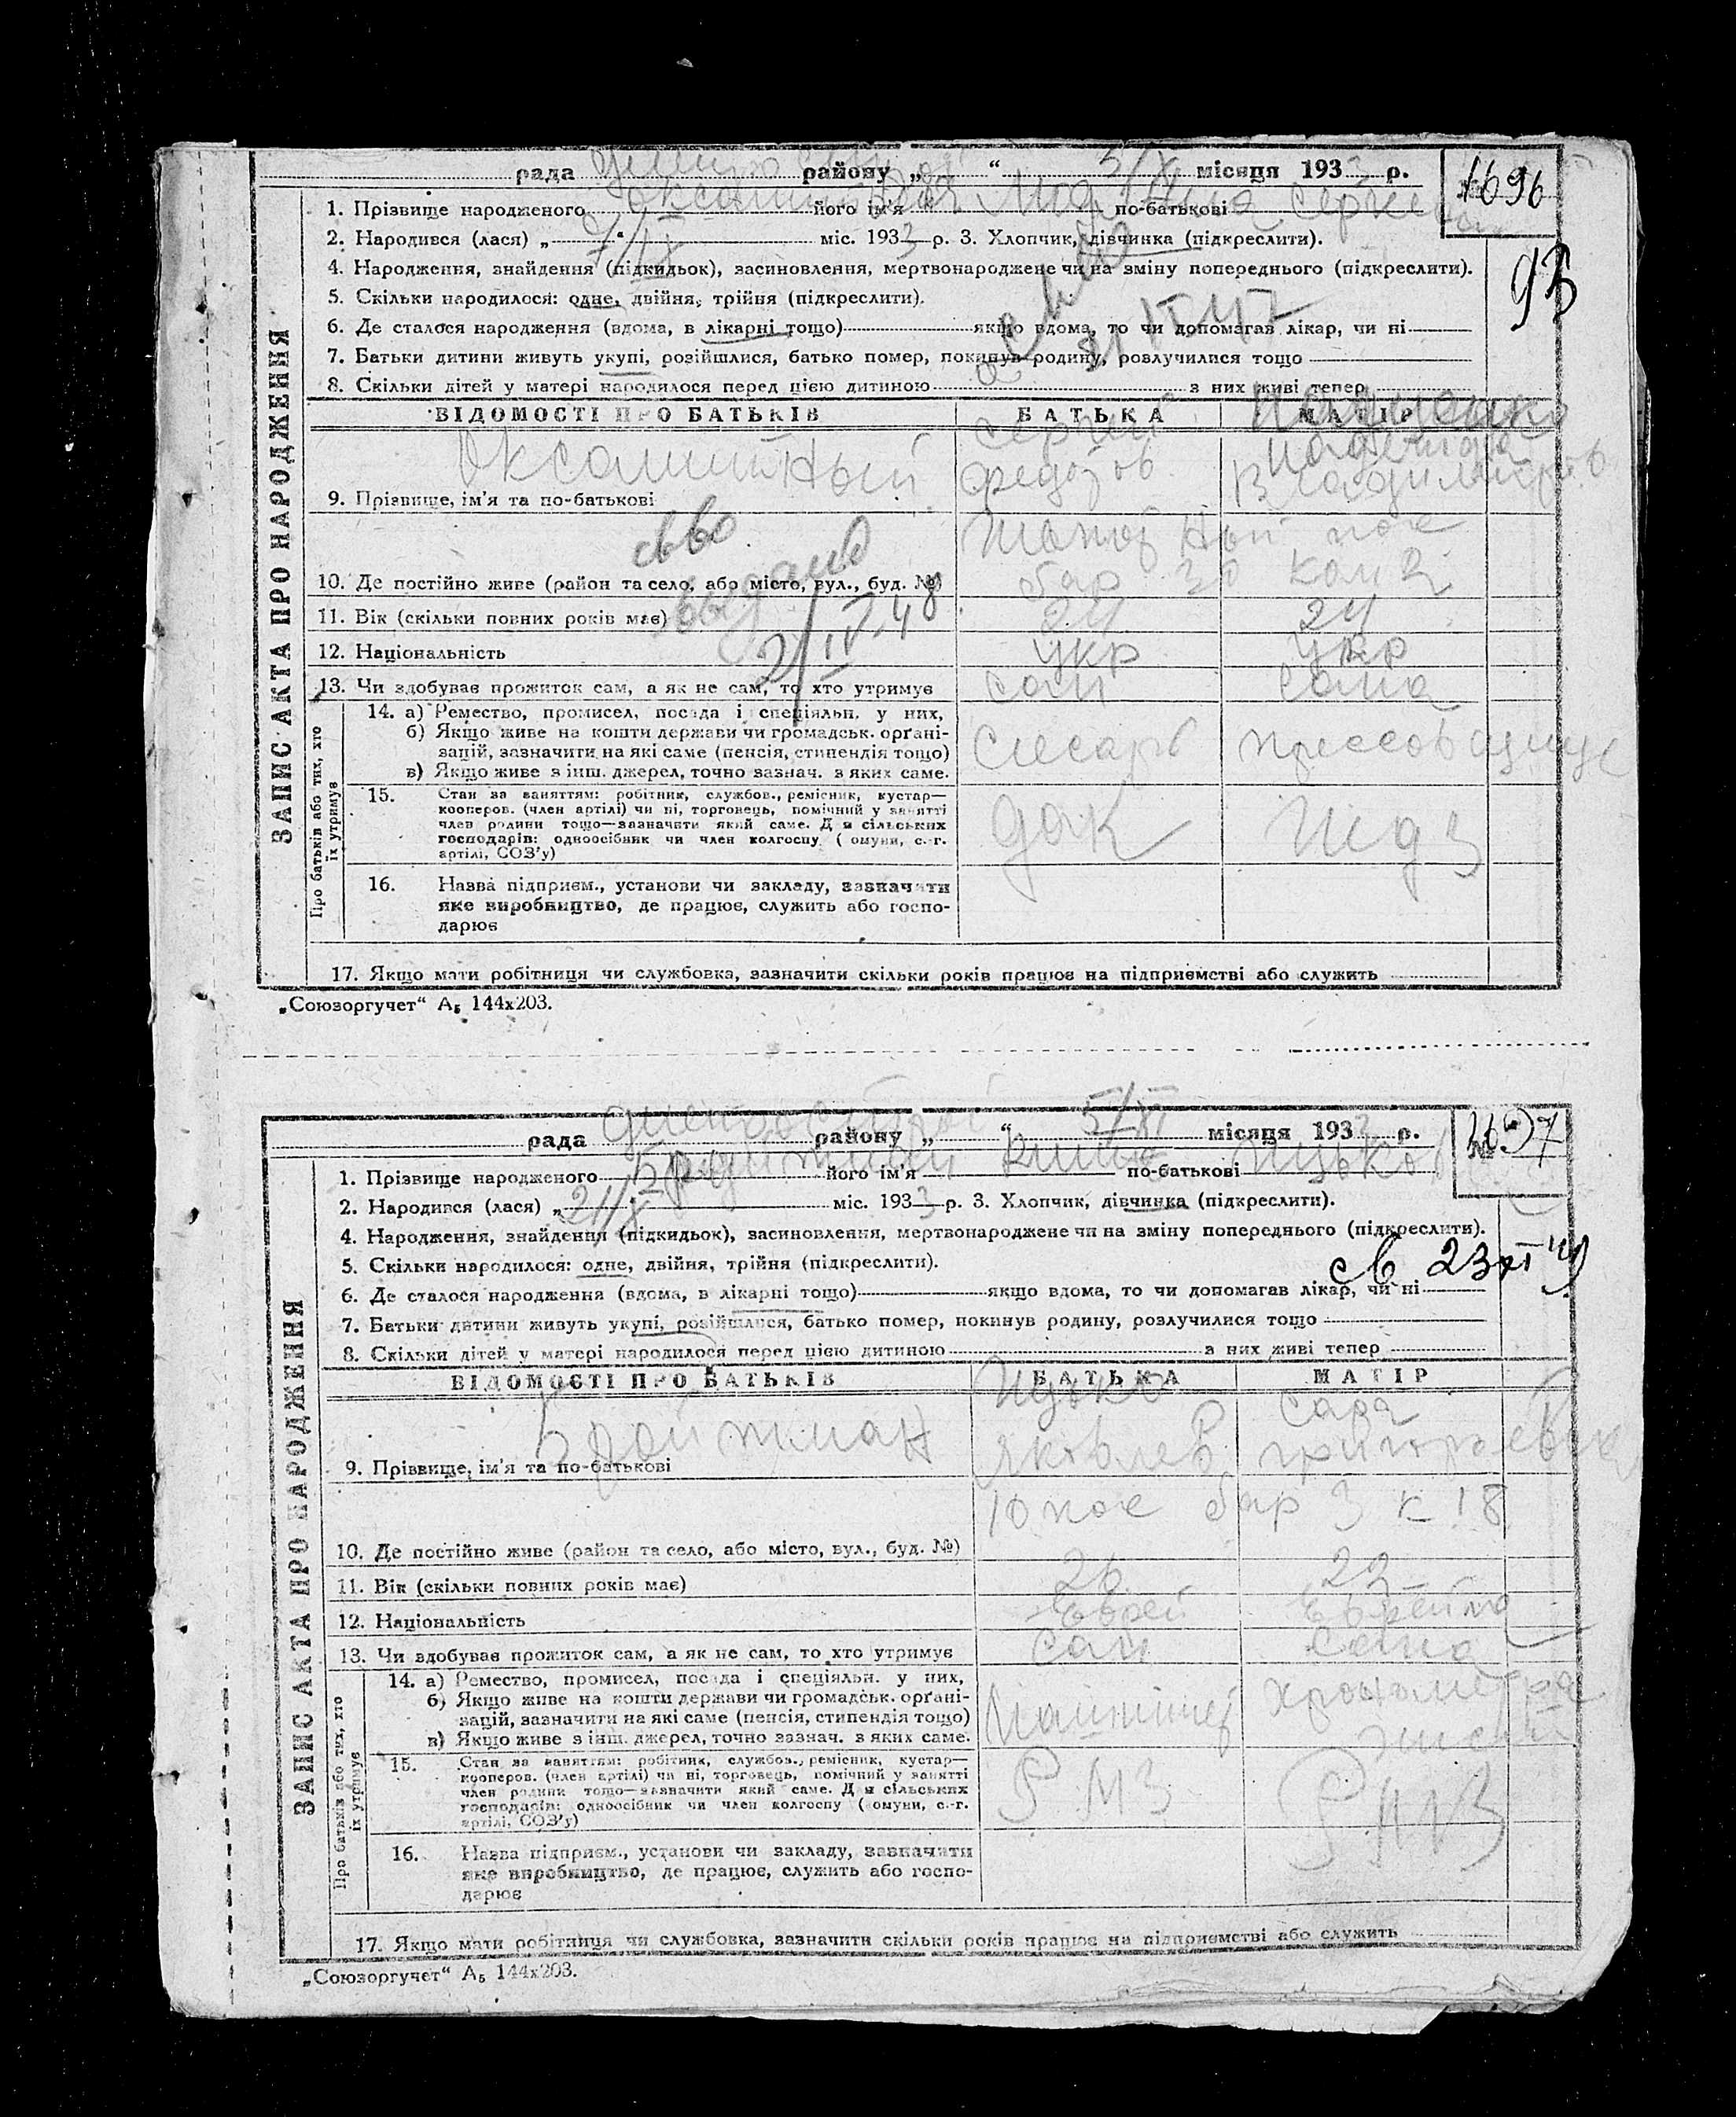 рада району „ “ 5/XI місяця 1933 р.
1696
1. Прізвище народженого його ім'я по-батькові
2. Народився (лася) „ 7/IX “ міс. 1933 р. 3. Хлопчик, дівчинка (підкреслити).
93
4. Народження, знайдення (підкидьок), засиновлення, мертвонароджене чи на зміну попереднього (підкреслити).
5. Скільки народилося: одне, двійня, трійня (підкреслити).
6. Де сталося народження (вдома, в лікарні тощо) якщо вдома, то чи допомагав лікар, чи ні
7. Батьки дитини живуть укупі, розійшлися, батько помер, покинув родину, розлучилися тощо
8. Скільки дітей у матері народилося перед цією дитиною з них живі тепер
ЗАПИС АКТА ПРО НАРОДЖЕННЯ
ВІДОМОСТІ ПРО БАТЬКІВ БАТЬКА МАТІР
Оксамитный Сергей Надежда
Федотов Владимиров
9. Прізвище, ім'я та по-батькові
св-во
пос
10. Де постійно живе (район та село, або місто, вул., буд. №) бар 30 ком 3
выдано
11. Вік (скільки повних років має) 24 24
2/IV-48
12. Національність укр укр
13. Чи здобуває прожиток сам, а як не сам, то хто утримує сам сама
Про батьків або тих, хто їх утримує
14. а) Ремество, промисел, посада і спеціяльн. у них,
б) Якщо живе на кошти держави чи громадськ. органі-
зацій, зазначити на які саме (пенсія, стипендія тощо)
в) Якщо живе з інш. джерел, точно зазнач. з яких саме.
слесарь прессовщица
15. Стан за заняттям: робітник, службов., ремісник, кустар—
кооперов. (член артілі) чи ні, торговець, помічний у занятті
член родини тощо—зазначити який саме. Для сільських
господарів: одноосібник чи член колгоспу (комуни, с.-г.
артілі, СОЗ'у)
16. Назва підприєм., установи чи закладу, зазначити
яке виробництво, де працює, служить або госпо-
дарює
17. Якщо мати робітниця чи службовка, зазначити скільки років працює на підприємстві або служить
„Союзоргучет“ А5 144х203.
рада району „ “ 5/XI місяця 1933 р.
1697
1. Прізвище народженого його ім'я по-батькові
2. Народився (лася) „ 21/X міс. 1933 р. 3. Хлопчик, дівчинка (підкреслити).
4. Народження, знайдення (підкидьок), засиновлення, мертвонароджене чи на зміну попереднього (підкреслити).
5. Скільки народилося: одне, двійня, трійня (підкреслити).
св 23
6. Де сталося народження (вдома, в лікарні тощо) якщо вдома, то чи допомагав лікар, чи ні
7. Батьки дитини живуть укупі, розійшлися, батько помер, покинув родину, розлучилися тощо
8. Скільки дітей у матері народилося перед цією дитиною з них живі тепер
ЗАПИС АКТА ПРО НАРОДЖЕННЯ
ВІДОМОСТІ ПРО БАТЬКІВ БАТЬКА МАТІР
Бройтман Ицько Сара
Яковлев Григорьевна
9. Прізвище, ім'я та по-батькові
10 пос бар 3 к 18
10. Де постійно живе (район та село, або місто, вул., буд. №)
11. Вік (скільки повних років має) 26 22
12. Національність Еврей Еврейка
13. Чи здобуває прожиток сам, а як не сам, то хто утримує сам сама
Про батьків або тих, хто їх утримує
14. а) Ремество, промисел, посада і спеціяльн. у них,
б) Якщо живе на кошти держави чи громадськ. органі-
зацій, зазначити на які саме (пенсія, стипендія тощо)
в) Якщо живе з інш. джерел, точно зазнач. з яких саме.
15. Стан за заняттям: робітник, службов., ремісник, кустар—
кооперов. (член артілі) чи ні, торговець, помічний у занятті
член родини тощо—зазначити який саме. Для сільських
господарів: одноосібник чи член колгоспу (комуни, с.-г.
артілі, СОЗ'у)
РМЗ РМЗ
16. Назва підприєм., установи чи закладу, зазначити
яке виробництво, де працює, служить або госпо-
дарює
17. Якщо мати робітниця чи службовка, зазначити скільки років працює на підприємстві або служить
„Союзоргучет“ А5 144х203.